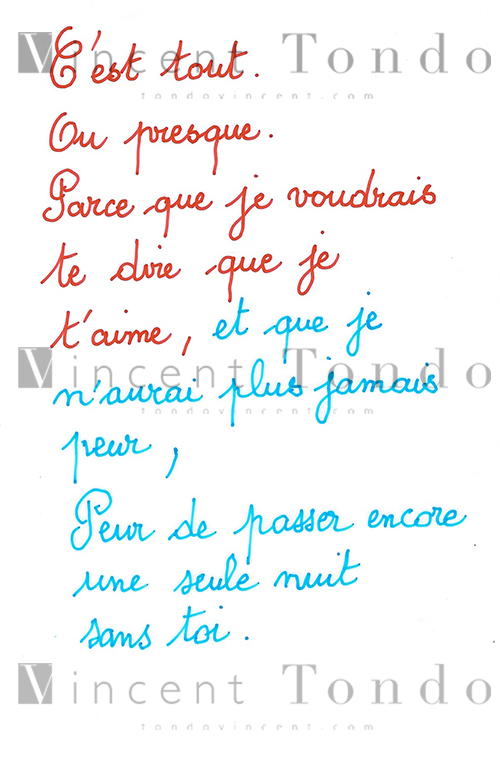 Vincent Tondo
tondovincent.com
C'est tout.
Ou presque.
Parce que je voudrais
te dire que je
t'aime, et que je
Vincent Tondo
n'aurai plus jamais
tondovincent.com
peur,
Peur de passer encore
une seule nuit
sans toi.
Vincent Tondo
tondovincent.com